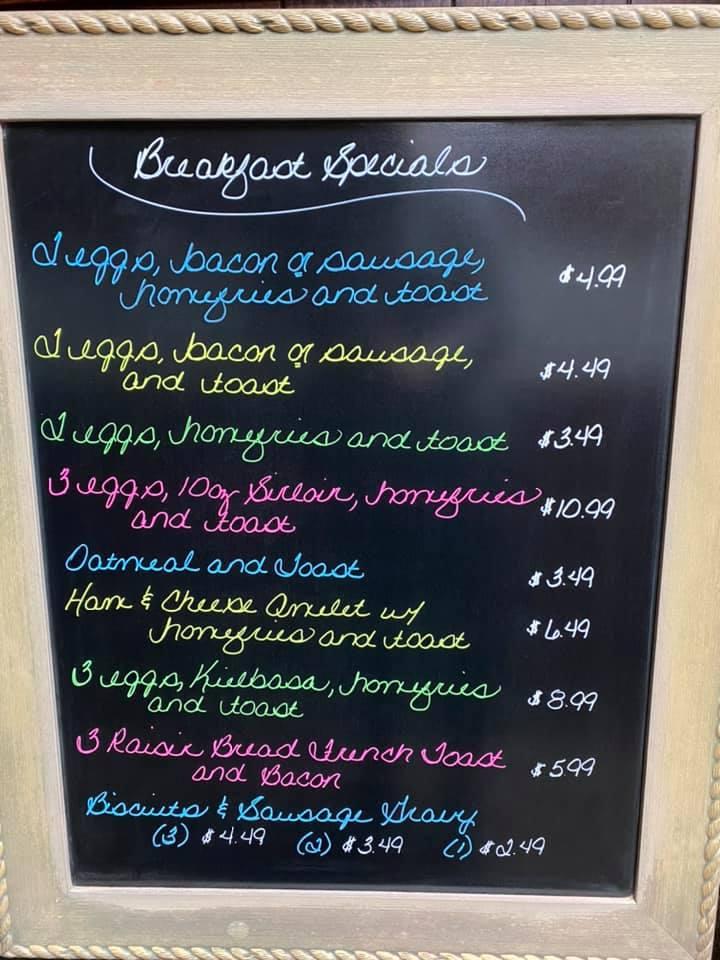 Breakfast Specials
2 eggs, bacon or sausage, $4.99
homefries and toast
2 eggs, bacon or sausage, $4.49
and toast
2 eggs, homefries and toast $3.49
3 eggs, 10oz Sirloin, homefries $10.99
and toast
Oatmeal and Toast $3.49
Ham & Cheese Omelet w/
homefries and toast $6.49
3 eggs, Kielbasa, homefries $8.99
and toast
3 Raisin Bread French Toast $5.99
and Bacon
Biscuits & Sausage Gravy
(3) $4.49 (2) $3.49 (1) $2.49